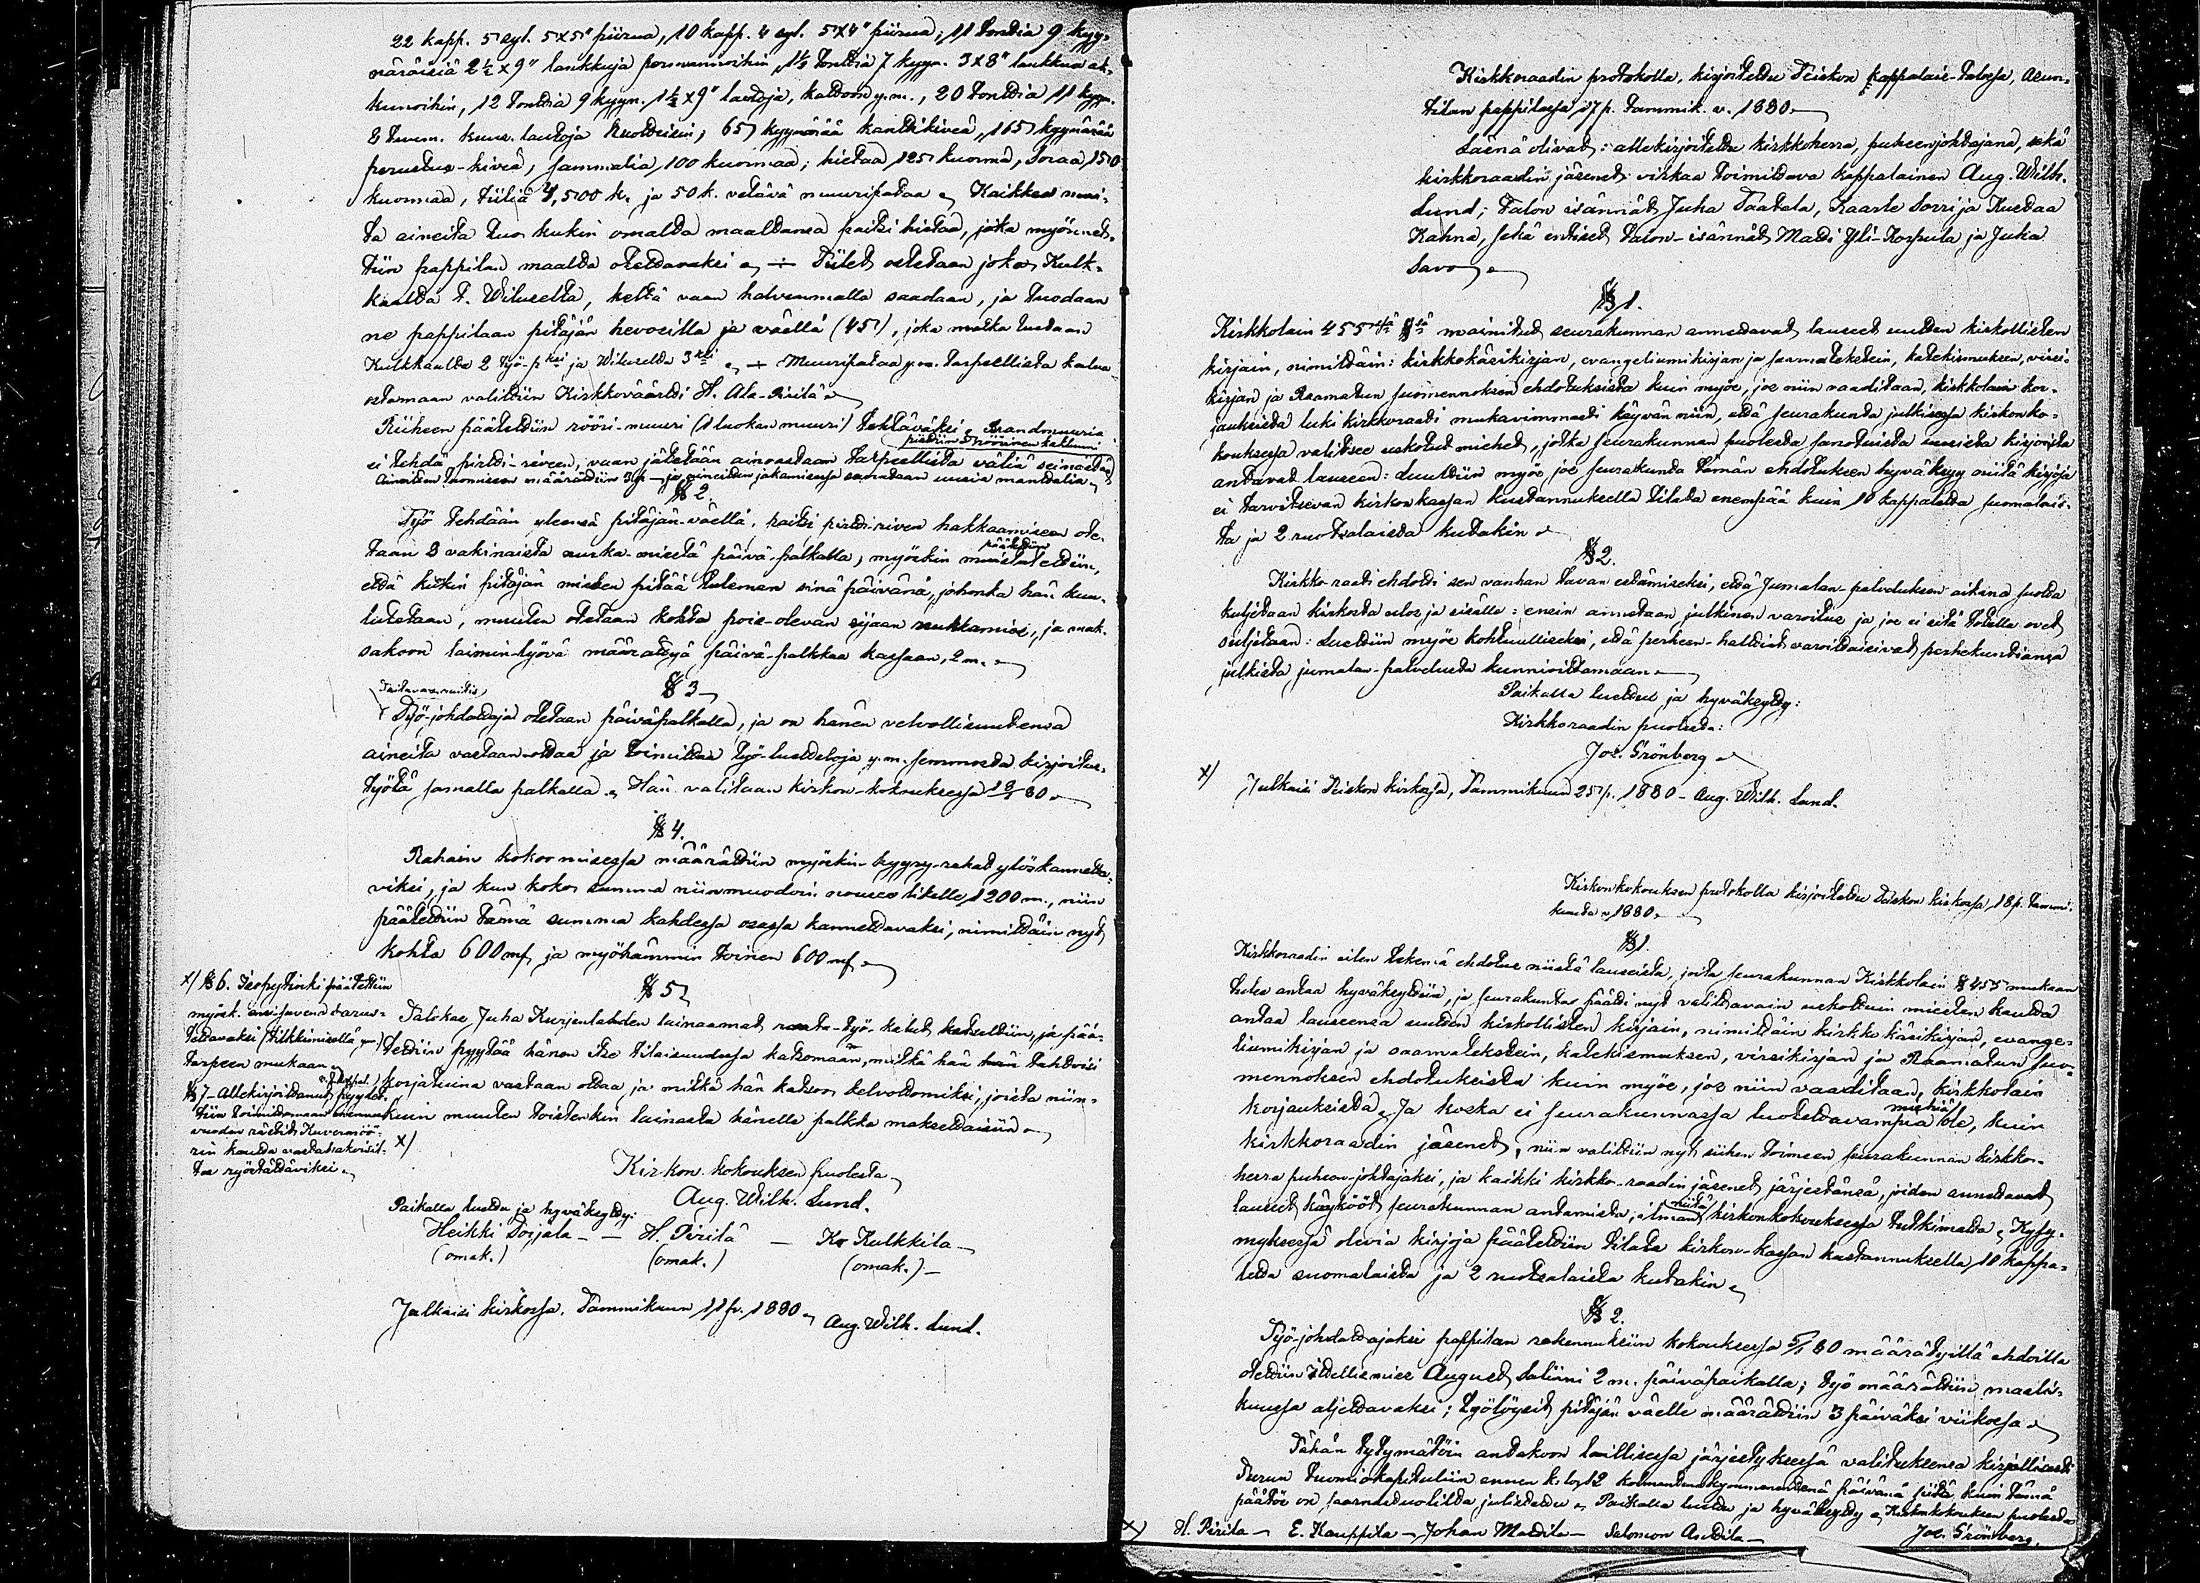 22 kapp. 5 syl. 5x5" piirua, 10 kapp. 4 syl. 5x4" piirua; 11 tonttia 9 kyy-
näräisiä 2½ x 9" lankkuja permannoihin, 1½ tonttia 7 kyyn. 3x8" lankkua ak-
kunoihin, 12 tonttia 9 kyyn. 1½ x 9" lautoja, kattoon y.m., 20 tonttia 11 kyyn.
lautoja 65 kyynärää kanttikiveä, 165 kyynärää
perustus-kiveä, sammalia 100 kuormaa; hietaa 125 kuormaa, soraa 150
kuormaa, tiiliä 4,500 k. ja 50 k. vetävä muuripataa. Kaikkea mui-
ta aineita tuo kukin omalta maaltansa paitsi hietaa, joka myönnet-
tiin pappilan maalta otettavaksi. ÷ Tiilet ostetaan joko Kulk-
kaalta t. Wiluselta, keltä vaan halvemmalla saadaan, ja tuodaan
ne pappilaan pitäjän hevosilla ja väellä (45), joka matka luetaan
Kulkkaalta 2 työ-p:ksi ja Wiluselta 3:ksi. ÷ Muuripataa y.m. tarpeellista kalua
ostamaan valittiin Kirkkoväärti H. Ala-Pirilä.
Riiheen päätettiin rööri-muuri (1 luokan muuri) tehtäväksi. Brandmuuria
ei tehdä pirtti-riveen, vaan jätetään ainoastaan tarpeellista väliä seinästä.
Aineitten tuomiseen määrättiin ja aineitten jakamisessa seurataan uusia manttalia.
§ 2.
Työ tehdään yleensä pitäjän-väellä, paitsi pirtti-riven hakkaamiseen ote-
taan 8 vakinaista nurka-miestä päivä-palkalla; myöskin päätettiin,
että kukin pitäjän mies pitää tuleman sinä päivänä, johonka hän kuu-
lutetaan, muuten otetaan kohta pois-olevan sijaan nurkkamies, ja mak-
sakoon laimin-lyövä määrättyä päivä-palkkaa kassaan, 2 m.
§ 3
Työ-johdattaja otetaan päiväpalkalla, ja on hänen velvollisuutensa
aineita vastaan-ottaa ja toimittaa työ-luetteloja y.m. semmoista kirjoitus-
työtä samalla palkalla. Hän valitaan kirkon-kokouksessa 18/1 80.
§ 4.
Rahain kokoomisessa määrättiin myöskin hyyry-rahat ylöskannetta-
viksi, ja kun koko summa niinmuodoin nousee likelle 1200 m., niin
päätettiin tämä summa kahdessa osassa kannettavaksi, nimittäin nyt
kohta 600 mk ja myöhemmin toinen 600 mk.
§ 5
Talokas Juha Kurjenlahden lainaamat rauta-työ-kalut katseltiin, ja pää-
tettiin pyytää hänen itse tilaisuudessa katsomaan, mitkä hän tahtoisi
korjattuina vastaan ottaa, ja mitkä hän katsoo kelvottomiksi, joista niin-
kuin muuten toistenkin lainasta hänelle palkka maksettaisiin.
x)
x) § 6. Isopytinki päätettiin
myösk. varus-
tettavaksi (tilkkimisellä ym)
tarpeen mukaan.
§ 7. Allekirjoittanut pyydet-
tiin toimittamaan
vuoden rästit Kuvernöö-
rin kautta
ryöstättäviksi.
Kirkon kokouksen puolesta
Aug. Wilh. Lund.
Paikalla luettu ja hyväksytty:
Heikki Torjala — H. Pirilä — K. Kulkkila
(omak.) (omak.) (omak.)
Julkaisi kirkossa, Tammikuun 11 p. 1880. Aug. Wilh. Lund.
Kirkkoraadin protokolla, kirjoitettu Teiskon kappalais-talossa, Asun-
tilan pappilassa 17 p. Tammik. v. 1880.
Läsnä olivat: allekirjoitettu kirkkoherra, puheenjohtajana, sekä
kirkkoraadin jäsenet: virkaa toimittava kappalainen Aug. Wilh.
Lund; Talon isännät Juha Taatala, Kaarle Sorri ja Kustaa
Kahna, sekä entiset talon-isännät Matti Yli-Korpula ja Juha
Savo.
§ 1.
Kirkkolain 455 §:ssä mainitut seurakunnan annettavat lauseet uutten kirkollisten
kirjain, nimittäin: kirkkokäsikirjan, evangeliumikirjan ja saarnatekstein, katekismuksen, virsi-
kirjan ja Raamatun suomennoksen ehdotuksista kuin myös, jos niin vaaditaan, kirkkolain kor-
jauksista luki kirkkoraati mukavimmasti käyvän niin, että seurakunta julkisessa kirkonko-
kouksessa valitsee uskotut miehet, jotka seurakunnan puolesta sanotuista uusista kirjoista
antavat lauseen: luultiin myös jos seurakunta tämän ehdotuksen hyväksyy niitä kirjoja
ei tarvitsevan kirkon kassan kustannuksella tilata enempää kuin 10 kappaletta suomalais-
ta ja 2 ruotsalaista kutakin.
§ 2.
Kirkko-raati ehdotti sen vanhan tavan estämiseksi, että Jumalan-palveluksen aikana suotta
kuljetaan kirkosta ulos ja sisälle: ensin annetaan julkinen varoitus ja jos ei sitä totella ovet
suljetaan: Luettiin myös kohtuulliseksi, että perheen-haltiat varoittaisivat perhekuntiansa
julkista jumalan-palvelusta kunnioittamaan.
Paikalla luettu ja hyväksytty:
Kirkkoraadin puolesta:
Jos. Grönberg
x) Julkaisi Teiskon kirkossa, Tammikuun 25 p. 1880 - Aug. Wilh. Lund.
Kirkonkokouksen protokolla kirjoitettu Teiskon kirkossa, 18 p. Tammi-
kuuta v. 1880.
§ 1.
Kirkkoraadin eilen tekemä ehdotus niistä lauseista, joita seurakunnan Kirkkolain § 455 mukaan
tulee antaa hyväksyttiin, ja seurakunta päätti nyt valittavain uskottuin miesten kautta
antaa lauseensa uutten kirkollisten kirjain, nimittäin kirkko käsikirjan, evange-
liumikirjan ja saarnatekstein, katekismuksen, virsikirjan ja Raamatun suo-
mennoksen ehdotuksista kuin myös, jos niin vaaditaan, kirkkolain
korjauksista. Ja koska ei seurakunnassa luotettavampia miehiä ole, kuin
kirkkoraadin jäsenet, niin valittiin nyt siihen toimeen seurakunnan kirkko-
herra puheen-johtajaksi, ja kaikki kirkko-raadin jäsenet järjestänsä, joiden annettavat
lauseet käykööt seurakunnan antamista, ilman niitä kirkonkokouksessa tutkimatta. Kysy-
myksessä olevia kirjoja päätettiin tilata kirkon-kassan kustannuksella 10 kappa-
letta suomalaista ja 2 ruotsalaista kutakin.
§ 2.
Työ-johdattajaksi pappilan rakennuksiin kokouksessa 5/1 80 määrätyillä ehdoilla
otettiin itsellismies August Saliini 2 m. päiväpalkalla; työ määrättiin maalis-
kuussa aljettavaksi; työlöysit pitäjän väelle määrättiin 3 päiväksi viikossa.
Tähän tytymätöin antakoon laillisessa järjestyksessä valituksensa kirjallisesti
Turun tuomiokapituliin ennen k:lo 12 kolmantenakymmenentenä päivänä siitä kuin tämä
päätös on saarnatuolilta julistettu. Paikalla luettu ja hyväksytty. Kirkonkokouksen puolesta
x) H. Pirilä — E. Kauppila — Johan Mattila — Salomon Anttila — Jos. Grönberg.